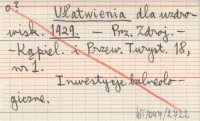 o?
Ułatwienia dla uzdro-
wisk. 1929. — Prz. Zdroj.-
-Kąpiel. i Przew. Turyst. 18,
nr 1.
Inwestycje balneolo-
giczne.